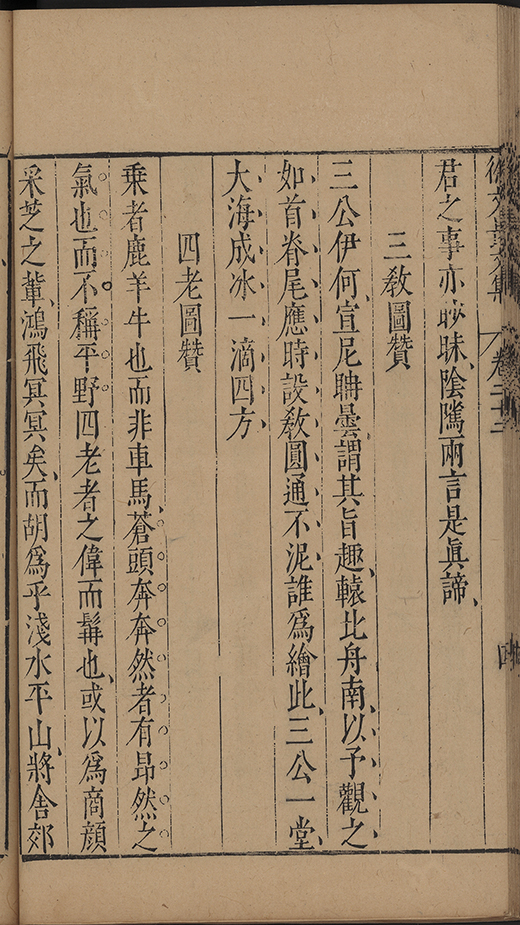 徐文長文集 卷二十二 四
君之事亦眇昧陰隲兩言是眞諦
三敎圖贊
三公伊何宣尼聃曇謂其旨趣轅北舟南以予觀之
如首脊尾應時設敎圓通不泥誰爲繪此三公一堂
大海成冰一滴四方
四老圖贊
乗者鹿羊牛也而非車馬蒼頭奔奔然者有昂然之
氣也而不稱乎野四老者之偉而髯也或以爲商顔
采芝之輩鴻飛冥冥矣而胡爲乎淺水平山將舍郊